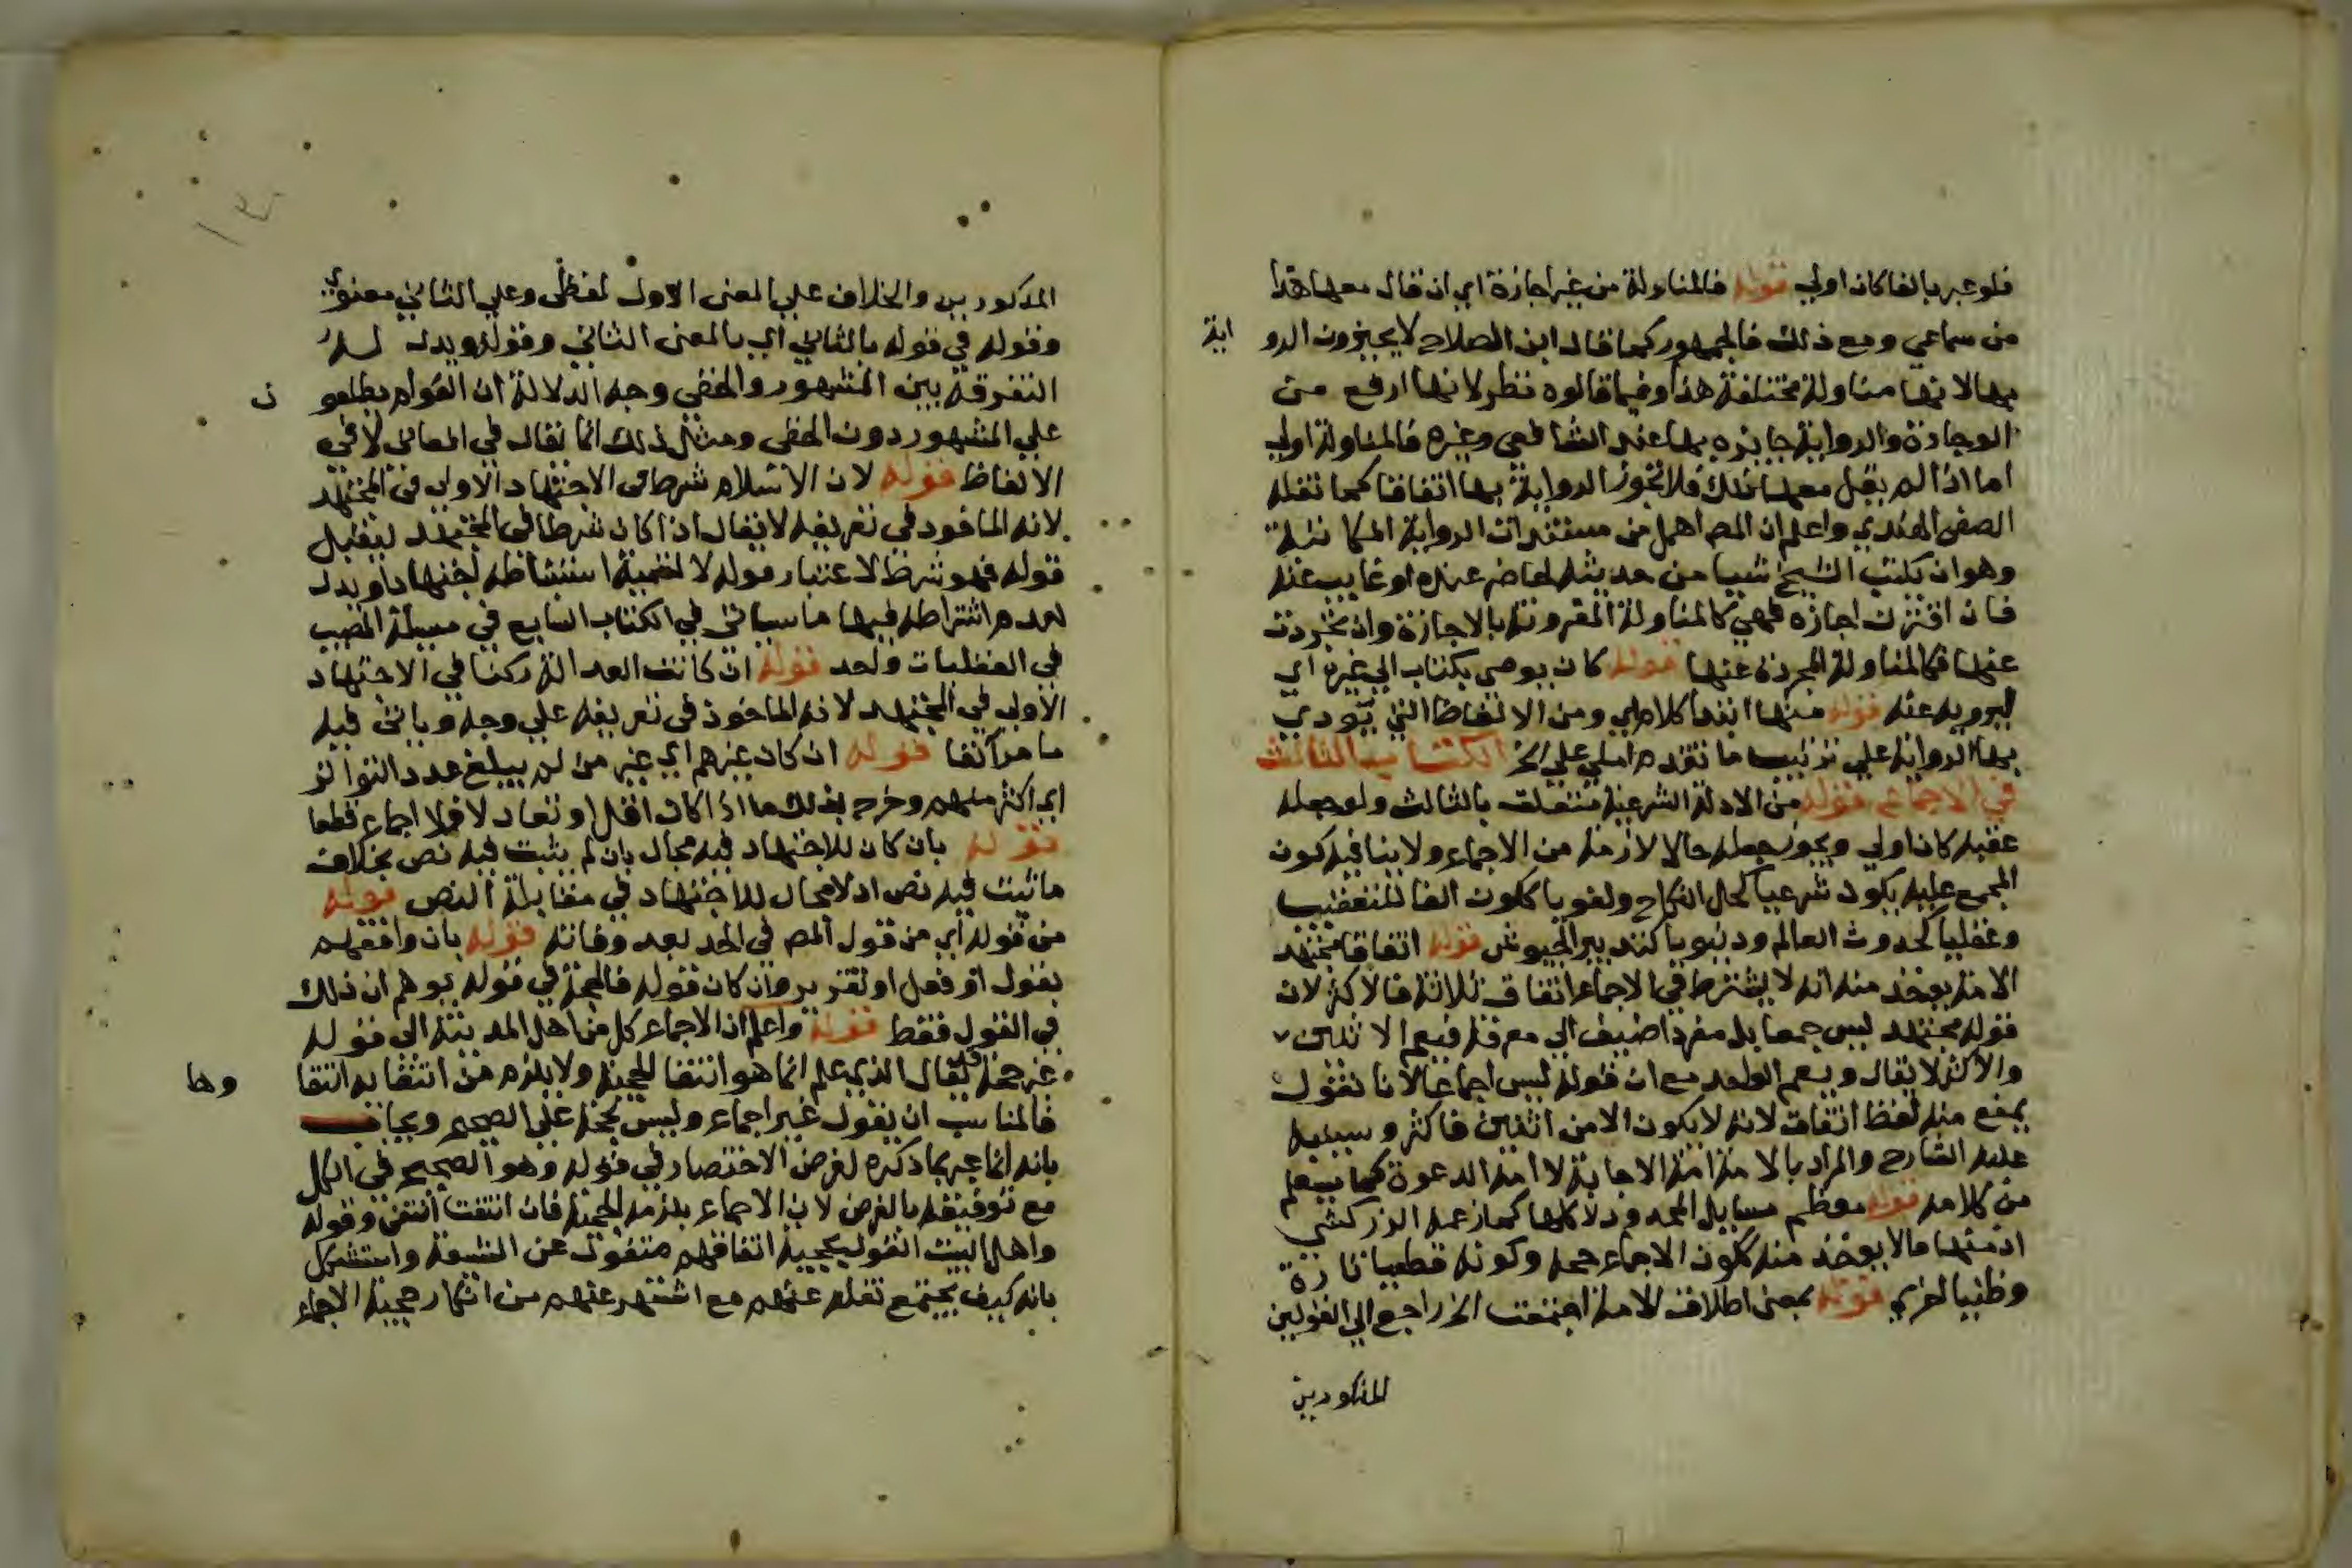 فلو عبر بالفا كان اولي قوله فالمناولة من غير اجازة اي ان قال معها هذا
من سماعي ومع ذلك فالجمهور كما قال ابن الصلاح لا يجيزون الرو اية
بها لانها مناولة مختلفة هذا وفيما قالوه نظر لانها ارفع من
الوجادة والرواية جايزه بها عند الشافعي وغيره فالمناولة اولي
اما اذا لم يقل معها ذلك فلا تجوز الرواية بها اتفاقا كما نقله
الصفي الهندي واعلم ان المص اهمل من مستندات الرواية المكاتبة
وهو ان يكتب الشيخ شيا من حديثه لحاضر عنده او غايب عنه
فان اقترنت اجازه فهي كالمناولة المقرونة بالاجازة وان تجردت
عنها فكالمناولة المجردة عنها قوله كان يوصي بكتاب الي غيره اي
ليرويه عنه قوله منها ابتدا كلام اي ومن الالفاظ التي تودي
بها الرواية علي ترتيب ما تقدم املي علي الخ الكتاب الثالث
في الاجماع قوله من الادلة الشرعية متعلق بالثالث ولو جعله
عقبه كان اولي ويجوز جعله حالا لازمة من الاجماع ولا ينافيه كون
المجمع عليه يكون شرعيا كحل النكاح ولغويا ككون الفا للتعقيب
وعقليا كحدوث العالم ودنيويا كتدبير الجيوش قوله اتفاق مجتهد
الامة يوخذ منه انه لا يشترط في الاجماع اتفاق ثلاثة فاكثر لان
قوله مجتهد ليس جمعا بل مفردا اضيف الي معرفة فيعم الاثنين
والاكثر لا يقال ويعم الواحد مع ان قوله ليس اجماعا لانا نقول
يمنع منه لفظ اتفاق لانه لا يكون الا من اثنين فاكثر وسينبه
عليه الشارح والمراد بالامة امة الاجابة لا امة الدعوة كما سيعلم
من كلامه قوله معظم مسايل المحدود لا كلها كما زعمه الزركشي
اذ منها ما لا يوخذ منه ككون الاجماع حجه وكونه قطعيا تارة
وظنيا اخري قوله بمعني اطلاق الامة اجتمعت الخ راجع الي القولين
المذكورين
المذكورين والخلاف علي المعني الاول لفظي وعلي الثاني معنوي
وقوله في قوله بالثاني اي بالمعني الثاني وقوله ويدل له
التفرقة بين المشهور والخفي وجه الدلالة ان العوام يطلعو ن
علي المشهور دون الخفي ومثل ذلك انما يقال في المعاني لا في
الالفاظ قوله لان الاسلام شرط في الاجتهاد الاولي في المجتهد
لانه الماخوذ في تعريفه لا يقال اذا كان شرطا في المجتهد ليقبل
قوله فهو شرط لاعتبار قوله لا لتسمية استنباطه اجتهادا ويدل
لعدم اشتراطه فيها ما سياتي في الكتاب السابع في مسيلة المصيب
في العقليات واحد قوله ان كانت العدالة ركنا في الاجتهاد
الاولي في المجتهد لانه الماخوذ في تعريفه علي وجه وياتي فيه
ما مر آنفا قوله ان كان غيرهم اي غير من لم يبلغ عدد التواتر
اي اكثر منهم وخرج بذلك ما اذا كان اقل او تعادلا فلا اجماع قطعا
قوله بان كان للاجتهاد فيه مجال بان لم يثبت فيه نص بخلاف
ما ثبت فيه نص اذ لا مجال للاجتهاد في مقابلة النص قوله
من قوله اي من قول المص في الحد بعد وفاته قوله بان وافقهم
بقول او فعل او تقرير وان كان قوله فالحجة في قوله يوهم ان ذلك
في القول فقط قوله واعلم ان الاجماع كل من اهل المدينة الي قوله
غير حجة قد يقال الذي علم انما هو انتفا الحجية ولا يلزم من انتفايه انتقا وها
فالمناسب ان يقول غير اجماع وليس بحجة علي الصحيح ويجاب
بانه انما عبر بما ذكره لغرض الاختصار في قوله وهو الصحيح في الكل
مع توفيقه بالغرض لان الاجماع يلزمه الحجية فان انتفت انتفي وقوله
واهل البيت القول بحجية اتفاقهم منقول عن الشيعة واستشكل
بانه كيف يجتمع نقله عنهم مع اشتهر عنهم من انكار حجية الاجماع